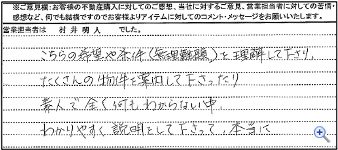 ※ご意見欄：お客様の不動産購入に対してのご感想、当社に対するご意見、営業担当者に対しての苦情・
感想など、何でも結構ですのでお客様よりアイテムに対してのコメント・メッセージをお願いいたします。
営業担当者は 村井明人 でした。
こちらの希望や条件(無理難題)を理解して下さり、
たくさんの物件を案内して下さったり
素人で全く何もわからない中
わかりやすく説明をして下さって、本当に